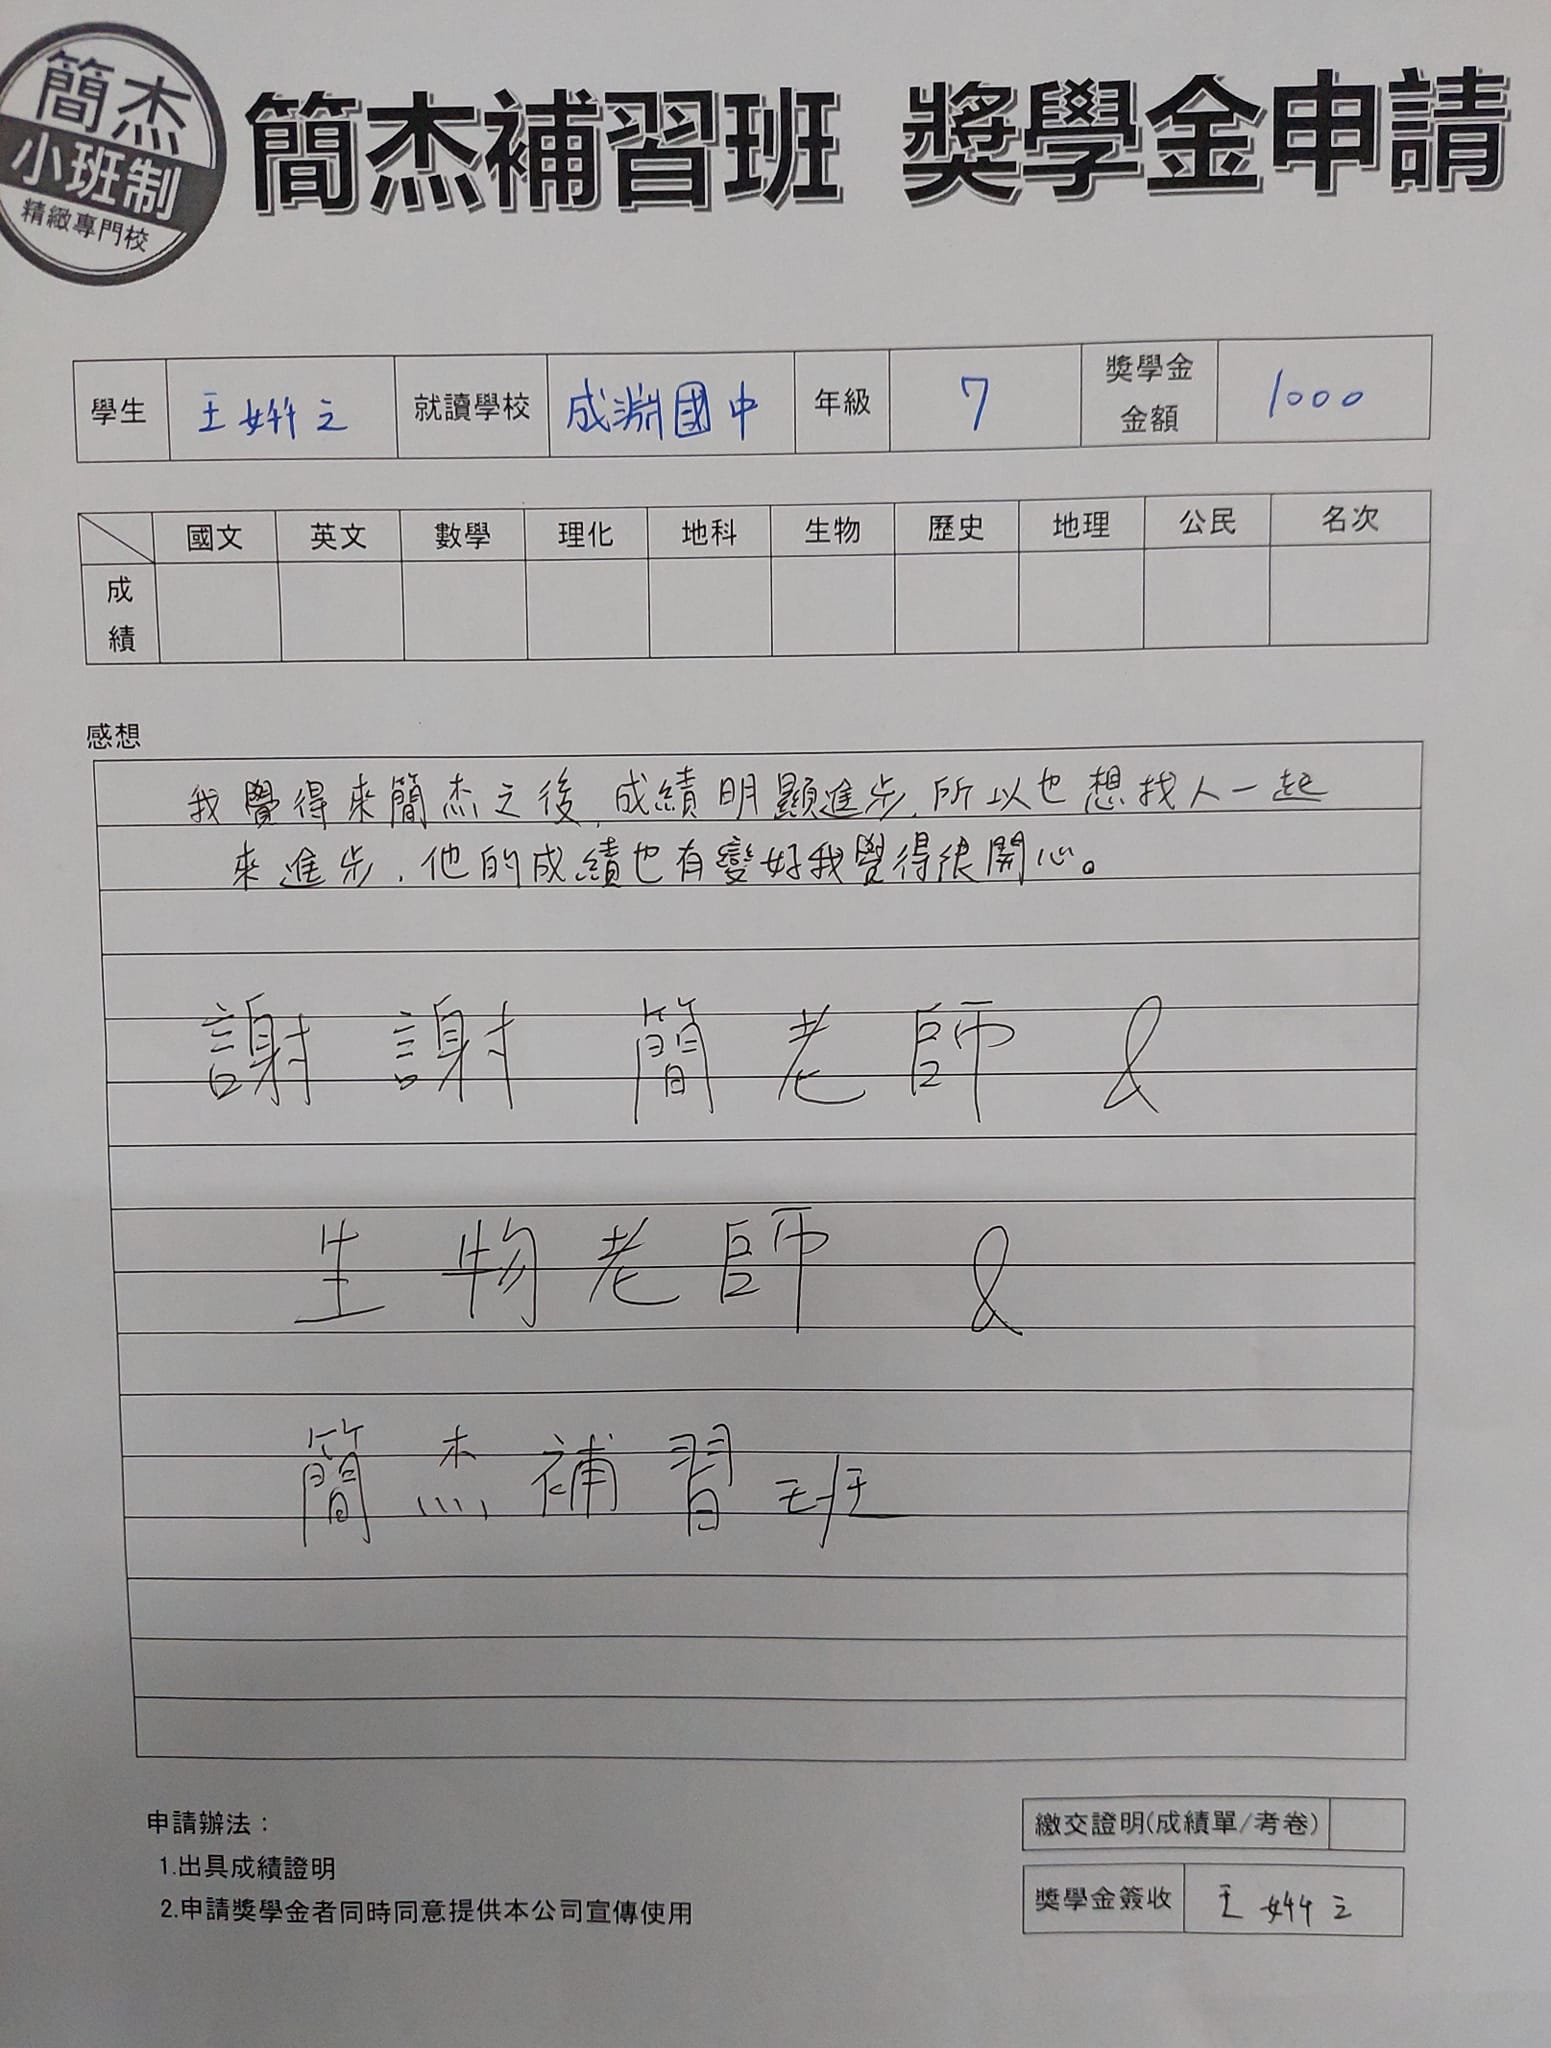 簡杰
小班制
精緻專門校
簡杰補習班 獎學金申請
學生 王姸之 就讀學校 成淵國中 年級 7 獎學金金額 1000
國文 英文 數學 理化 地科 生物 歷史 地理 公民 名次
成績
感想
我覺得來簡杰之後,成績明顯進步,所以也想找人一起
來進步,他的成績也有變好我覺得很開心。
謝謝 簡老師 &
生物老師 &
簡杰補習班
申請辦法:
1.出具成績證明
2.申請獎學金者同時同意提供本公司宣傳使用
繳交證明(成績單/考卷)
獎學金簽收 王姸之